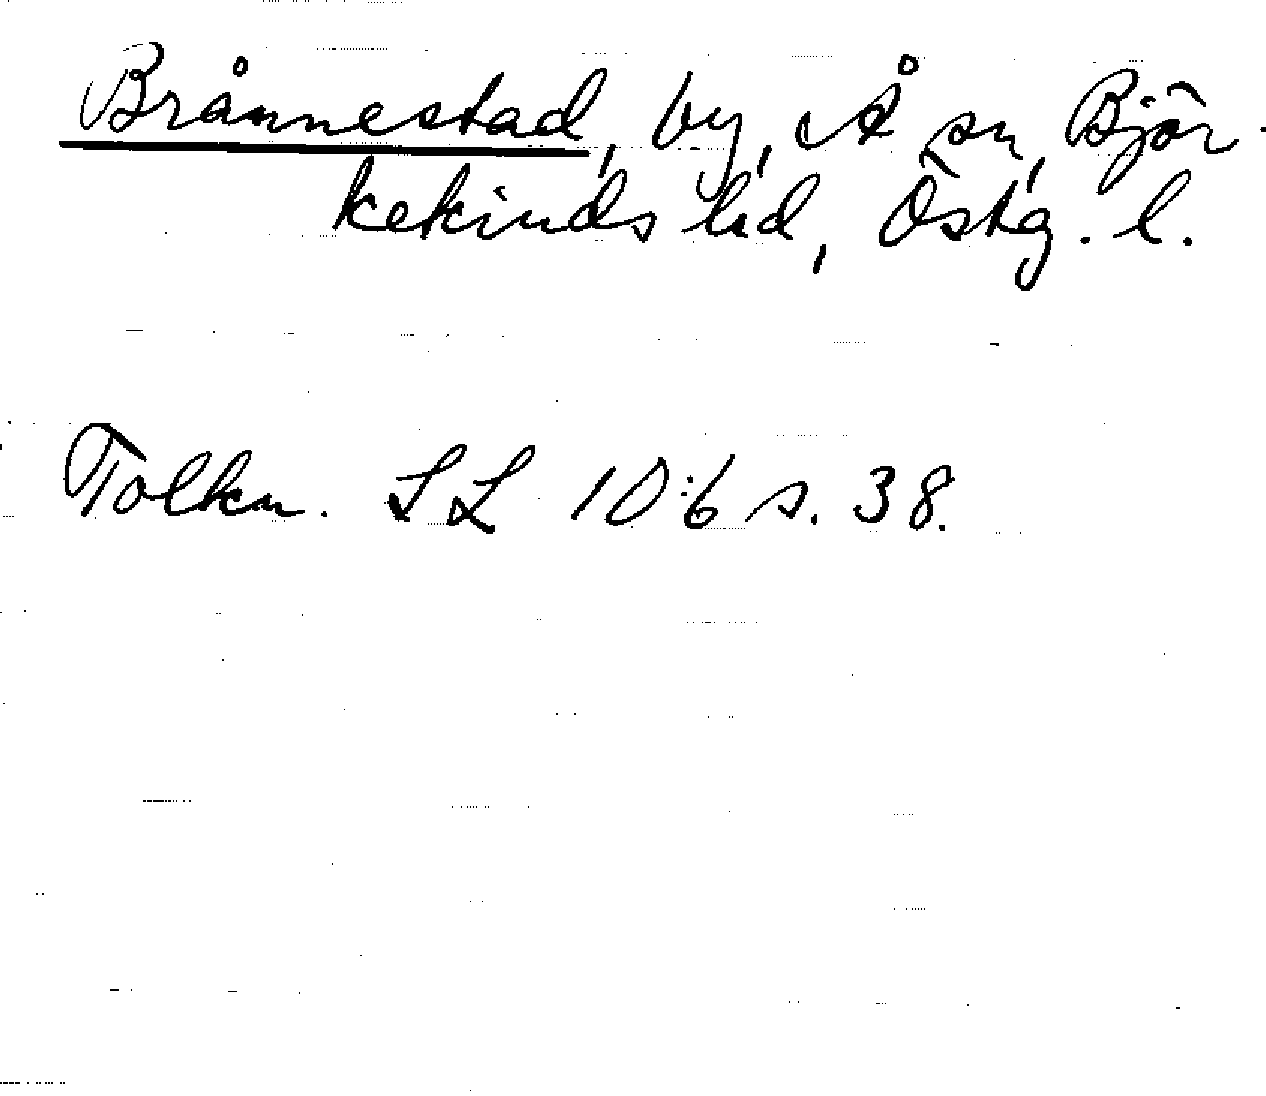 Brånnestad, by, Å sn, Björ-
kekinds hd, Östg. l.
Tolkn. SL 10:6 s. 38.